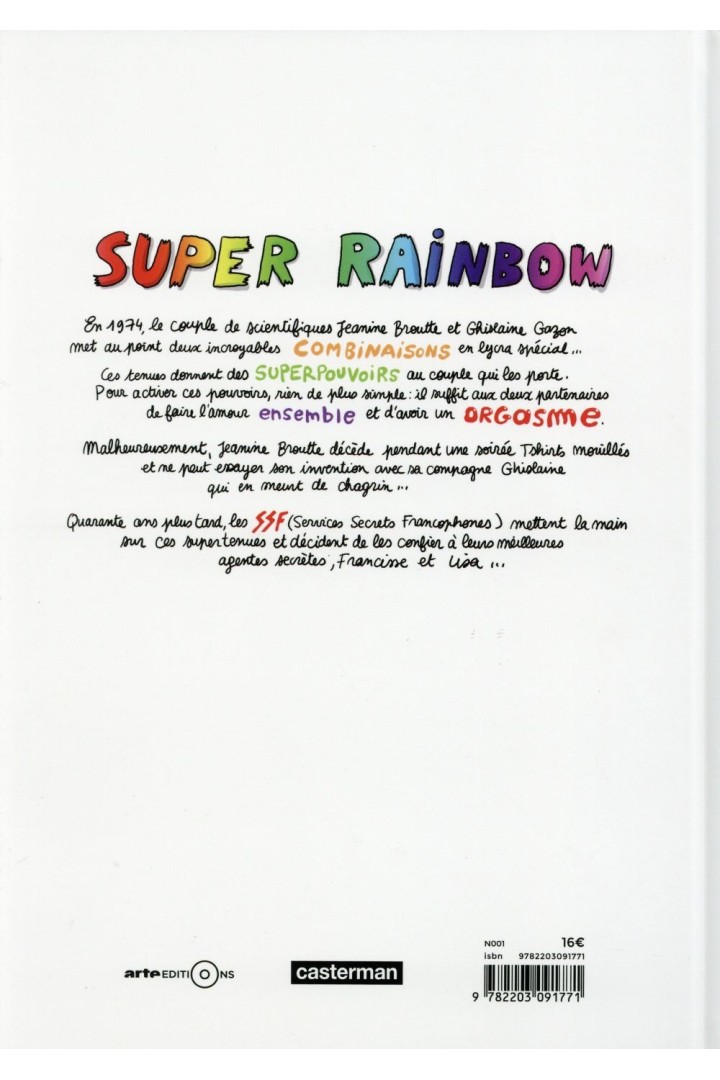 SUPER RAINBOW
En 1974, le couple de scientifiques Jeanine Broutte et Ghislaine Gazon
met au point deux incroyables COMBINAISONS en lycra spécial...
Ces tenues donnent des SUPERPOUVOIRS au couple qui les porte.
Pour activer ces pouvoirs, rien de plus simple : il suffit aux deux partenaires
de faire l'amour ensemble et d'avoir un ORGasme.
Malheureusement, Jeanine Broutte décède pendant une soirée Tshirts mouillés
et ne peut essayer son invention avec sa compagne Ghislaine
qui en meurt de chagrin...
Quarante ans plus tard, les SSF (Services Secrets Francophones) mettent la main
sur ces supertenues et décident de les confier à leurs meilleures
agentes secrètes, Francisse et Lisa...
N001 16€
isbn 9782203091771
arteEDITIONS
casterman
9 782203 091771